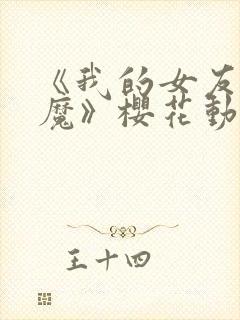 《我的女友
魔》櫻花動
王十四